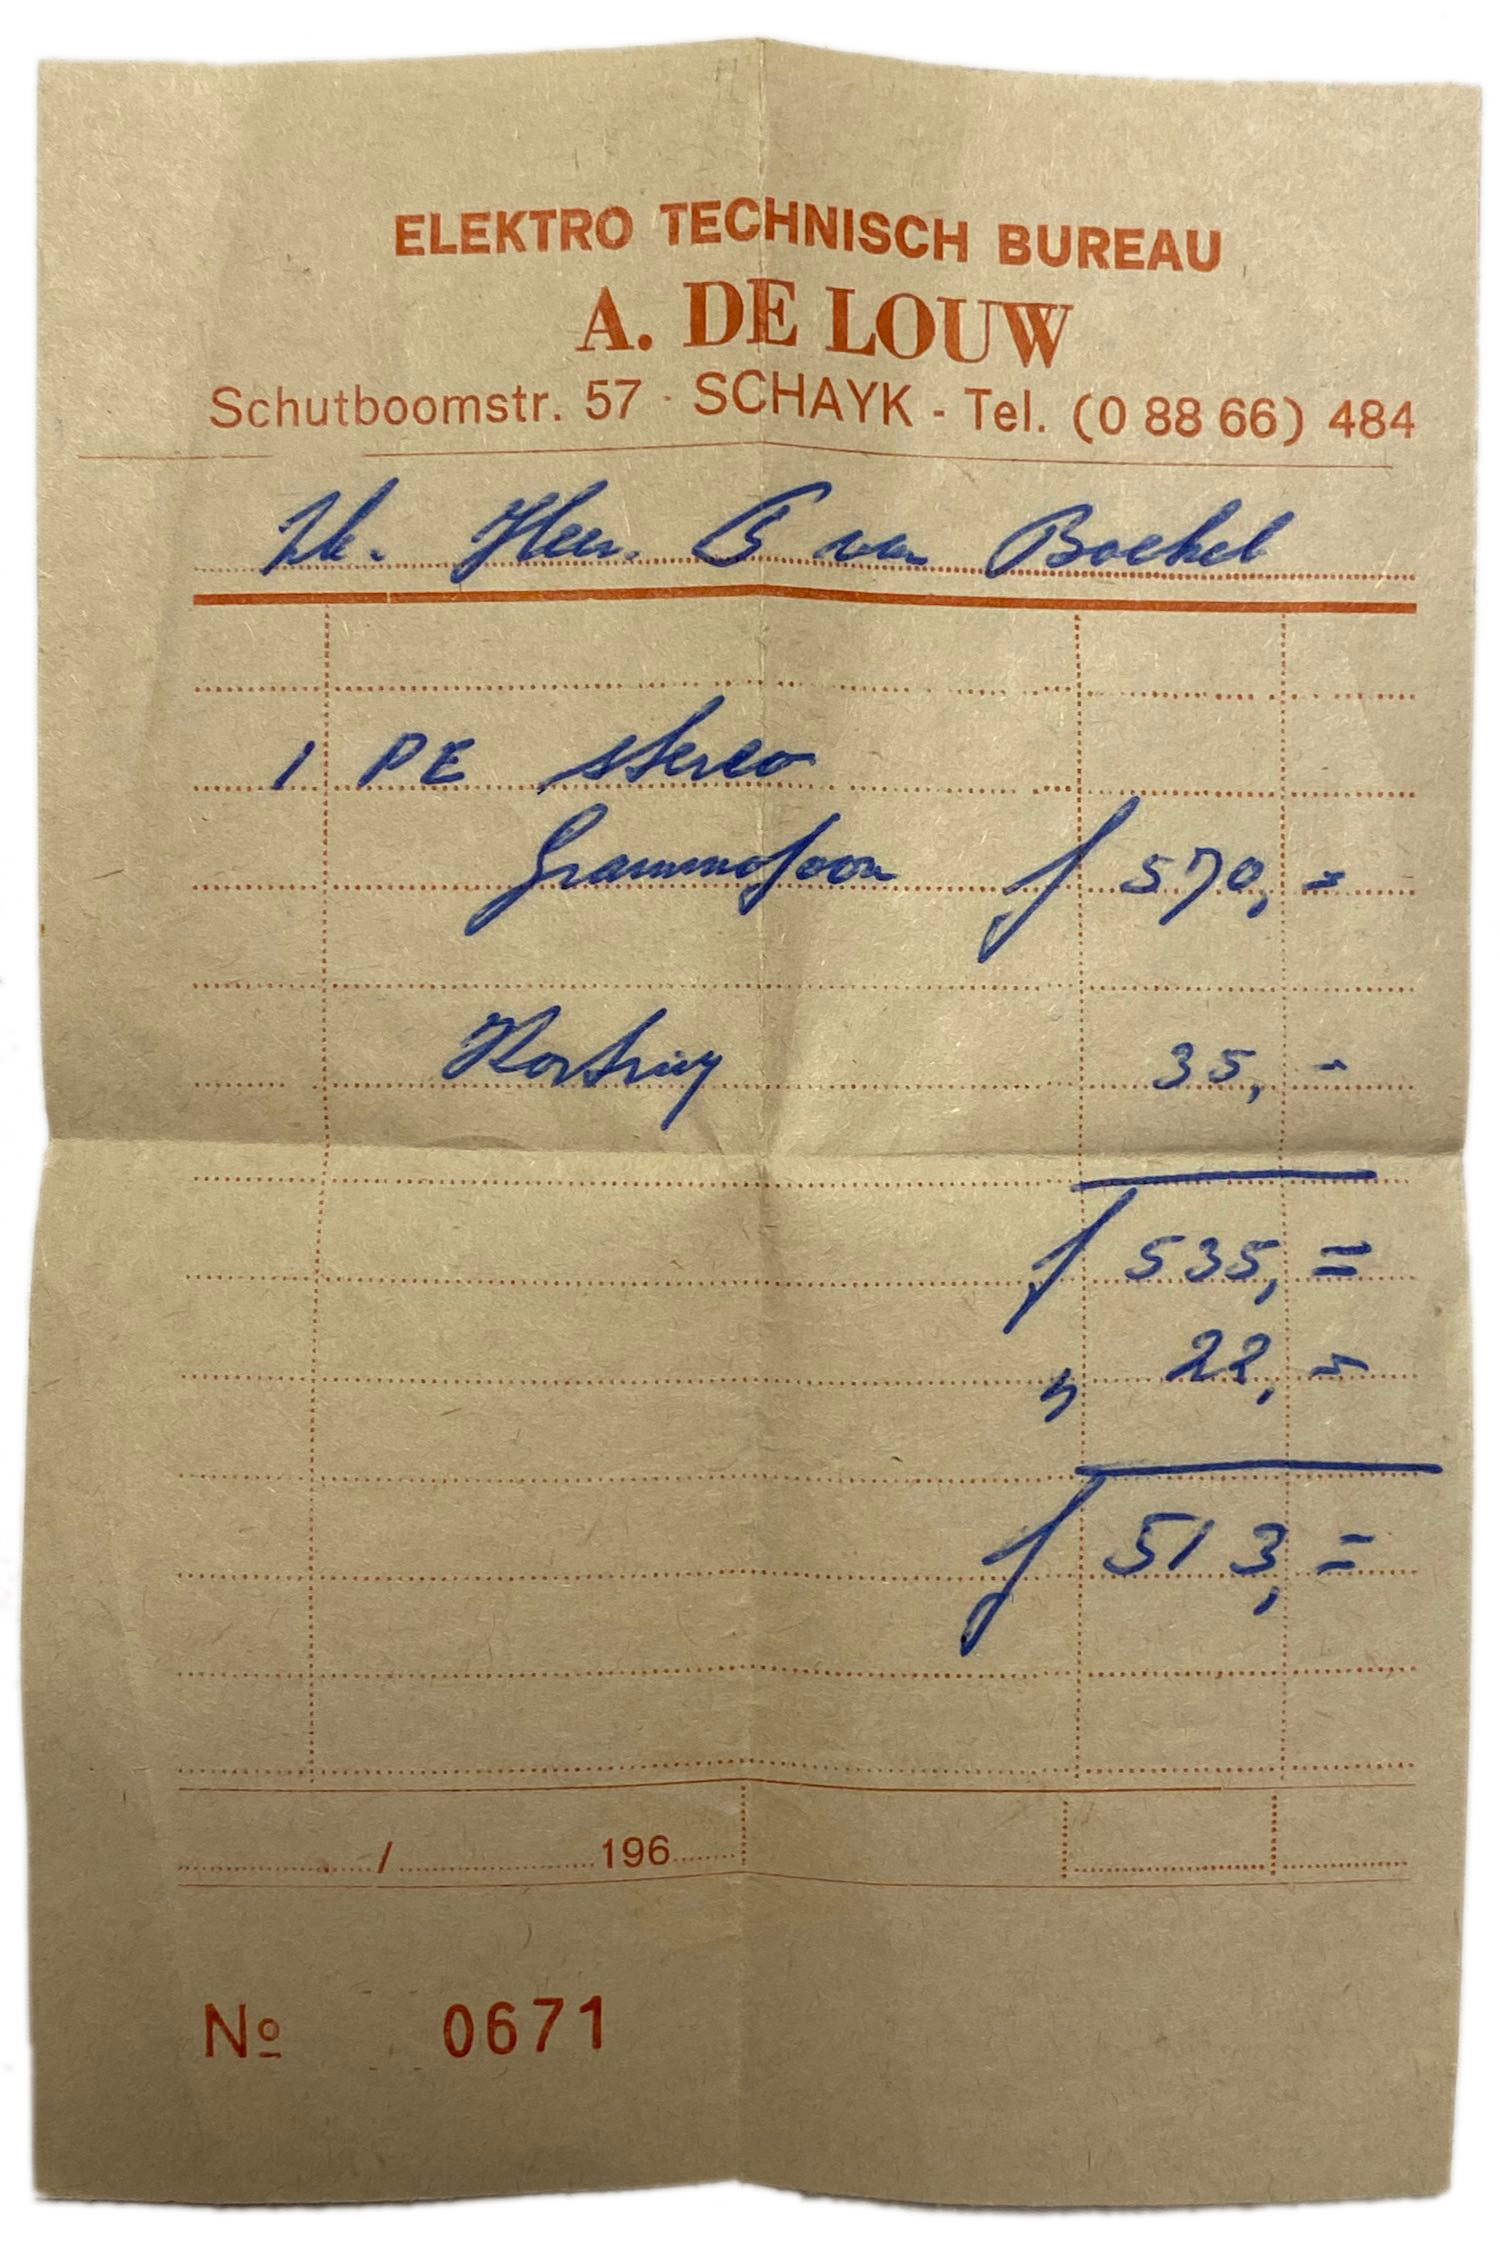 ELEKTRO TECHNISCH BUREAU
A. DE LOUW
Schutboomstr. 57 - SCHAYK - Tel. (0 88 66) 484
Heer. van Boekel
1 PE stereo
Grammofoon f 570,=
Korting 35,-
f 535,=
" 22,-
f 513,=
/ 196
No 0671